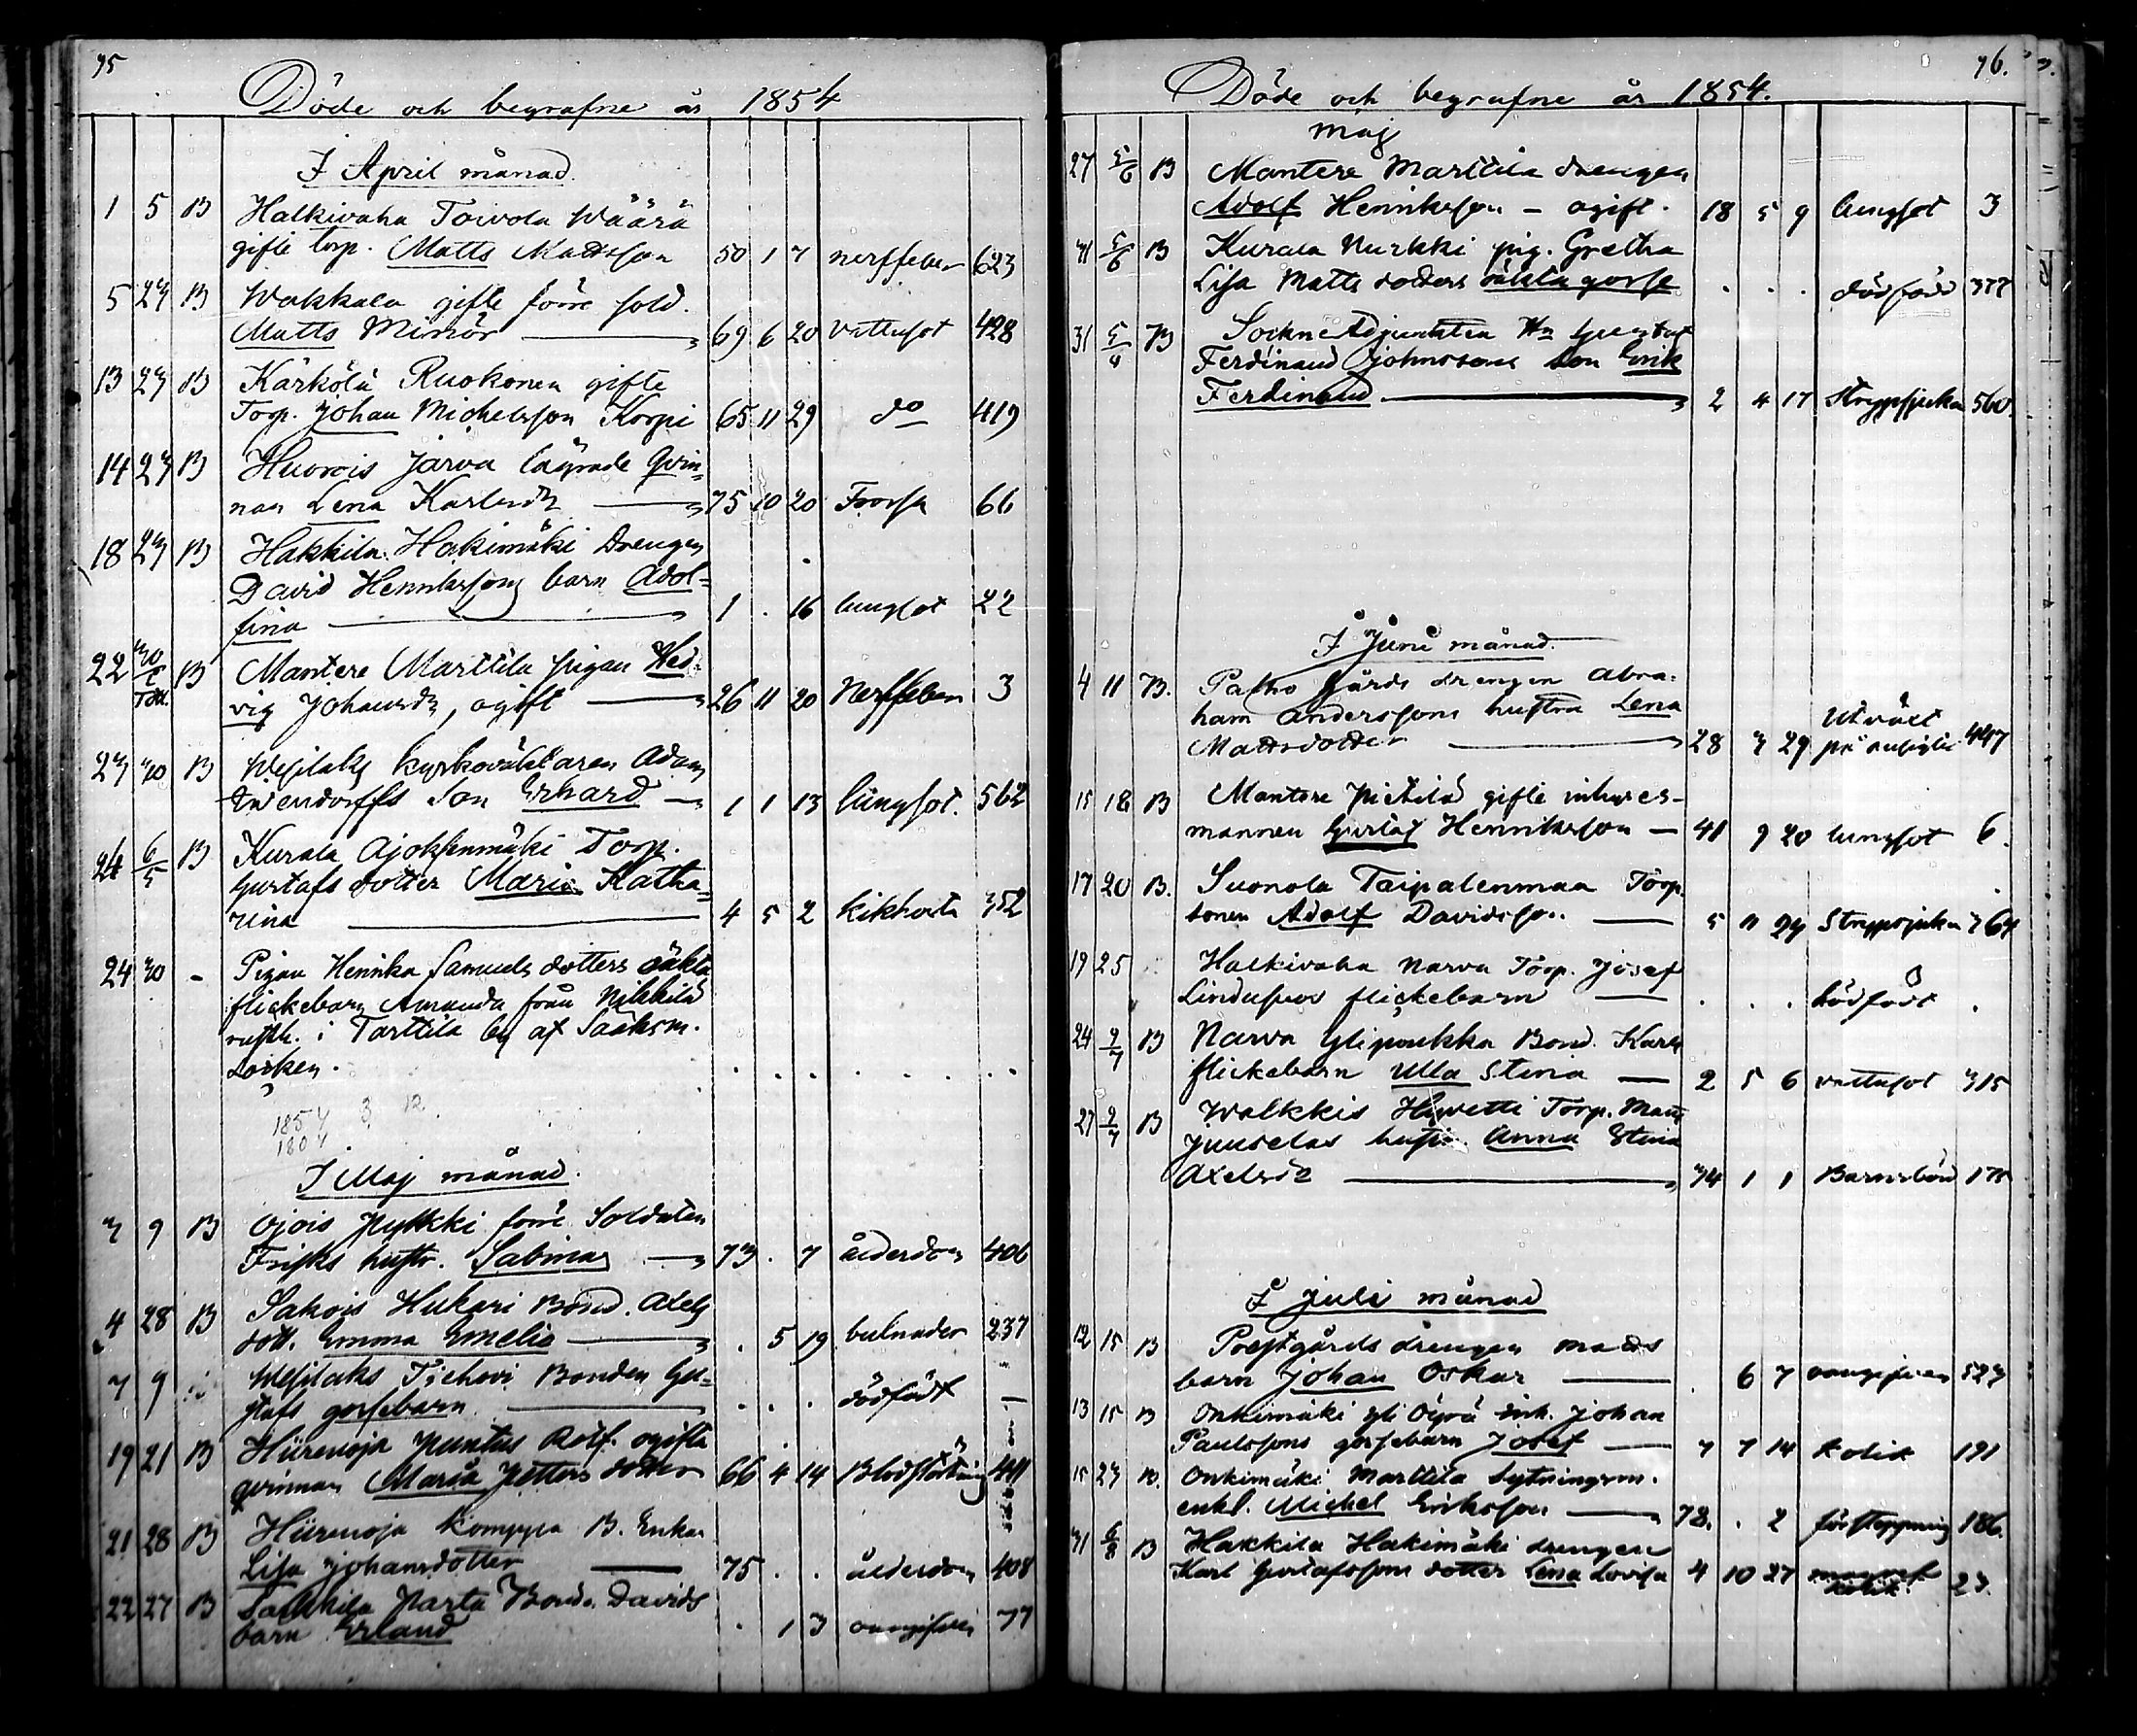 75
Döde och begrafne år 1854
I April månad.
1 5 B Halkivaha Toivola Wäärä
gifte torp. Matts Mattsson 50 1 7 nerffeber 623
5 23 B Wakkala gifte förre sold.
Matts Minör 69 6 20 vattusot 428
13 23 B Kärkölä Ruokonen gifte
Torp. Johan Michelsson Korpi 65 11 29 do 419
14 23 B Huovis Jarva lägrade Qvin-
nan Lena Karlsdr 75 10 20 Frossa 66
18 23 B Hakkila Hakimäki Drengen
David Henrikssons barn Adol-
fina 1 . 16 lungsot 22
22 30 B Mantere Marttila pigan Hed-
vig Johansdr, ogift 26 11 20 Nerffeber 3
23 30 B Wesilaks kyrkoväktaren Adam
Son Erhard 1 1 13 lungsot. 562
24 6/5 B Kurala Ajokenmäki Torp.
Gustafs dotter Maria Katha-
rina 4 5 2 kikhosta 352
24 30 - Pigan Henrika Samuels dotters oäkta
flickebarn Amanda från Nikkilä
rusth. i Tarttila by af Sääksm.
Socken. . . . . . .
1854 3 12
1804
I Maj månad.
3 9 B Ojois Pyttkki förre Soldaten
Frisks hustr. Sabina 73 . 7 ålderdom 406
4 28 B Sakois Hukari Bond. Axels
dott. Emma Emelia . 5 19 bulnader 237
7 9 Wesilaks Tiehovi Bonden Gu-
stafs gossebarn . . . dödfödt -
19 21 B Hiirenoja Puntus Rotf. ogifta
qvinnan Maria Petters dotter 66 4 14 Blodstörtning 441
21 28 B Hiirenoja Komppa B. Enkan
Lisa Johansdotter 75 . . ålderdom 408
22 27 B Parta Bond. Davids
barn Erland . 1 3 77
76.
Döde och begrafne år 1854.
maj
27 5/6 B Mantere Marttila drengen
Adolf Henriksson - ogift. 18 5 9 lungsot 3
31 5/6 B Kurala Nurkki pig. Gretha
Lisa Matts dotters oäkta gosse . . . dödfödd 377
31 5/6 B Sockne Adjunkten Gustaf
Ferdinand Johnssons son Erik
Ferdinand 2 4 17 Strypsjuka 560.
I Juni månad.
4 11 B. Palho Gårds drengen Abra-
ham Anderssons hustru Lena
Mattsdotter 28 3 29 Utväxt på ansigtet 447
15 18 B Mantere Pietilä gifte inhyses-
mannen Gustaf Henriksson 41 9 20 lungsot 6.
17 20 B. Suonola Taipalenmaa Torp.
sonen Adolf Davidsson 5 11 24 Strypsjuka 364
19 25 Halkivaha Narva Torp. Josef
flickebarn . . . dödfödt .
24 2/7 B Narva Ylipoukka Bond. Karls
flickebarn Ulla Stina 2 5 6 vattusot 315
27 2/7 B Walkkis Hyvetti Torp. Matts
Juuselas hustr. Anna Stina
Axelsdr 34 1 1 Barnsbörd 178
I Juli månad
12 15 B Prestgårds drengen Matts
barn Johan Oskar . 6 7 523
13 15 B Onkimäki Yli Öyrä inh. Johan
Paulssons gossebarn Josef 3 7 14 kolik 191
15 23 B. Onkimäki Marttila Sytningsm.
enkl. Michel Eriksson 78. . 2 förstoppning 186.
31 6/8 B Hakkila Hakimäki drengen
Karl Gustafssons dotter Lena Lovisa 4 10 27 kolik. 23.